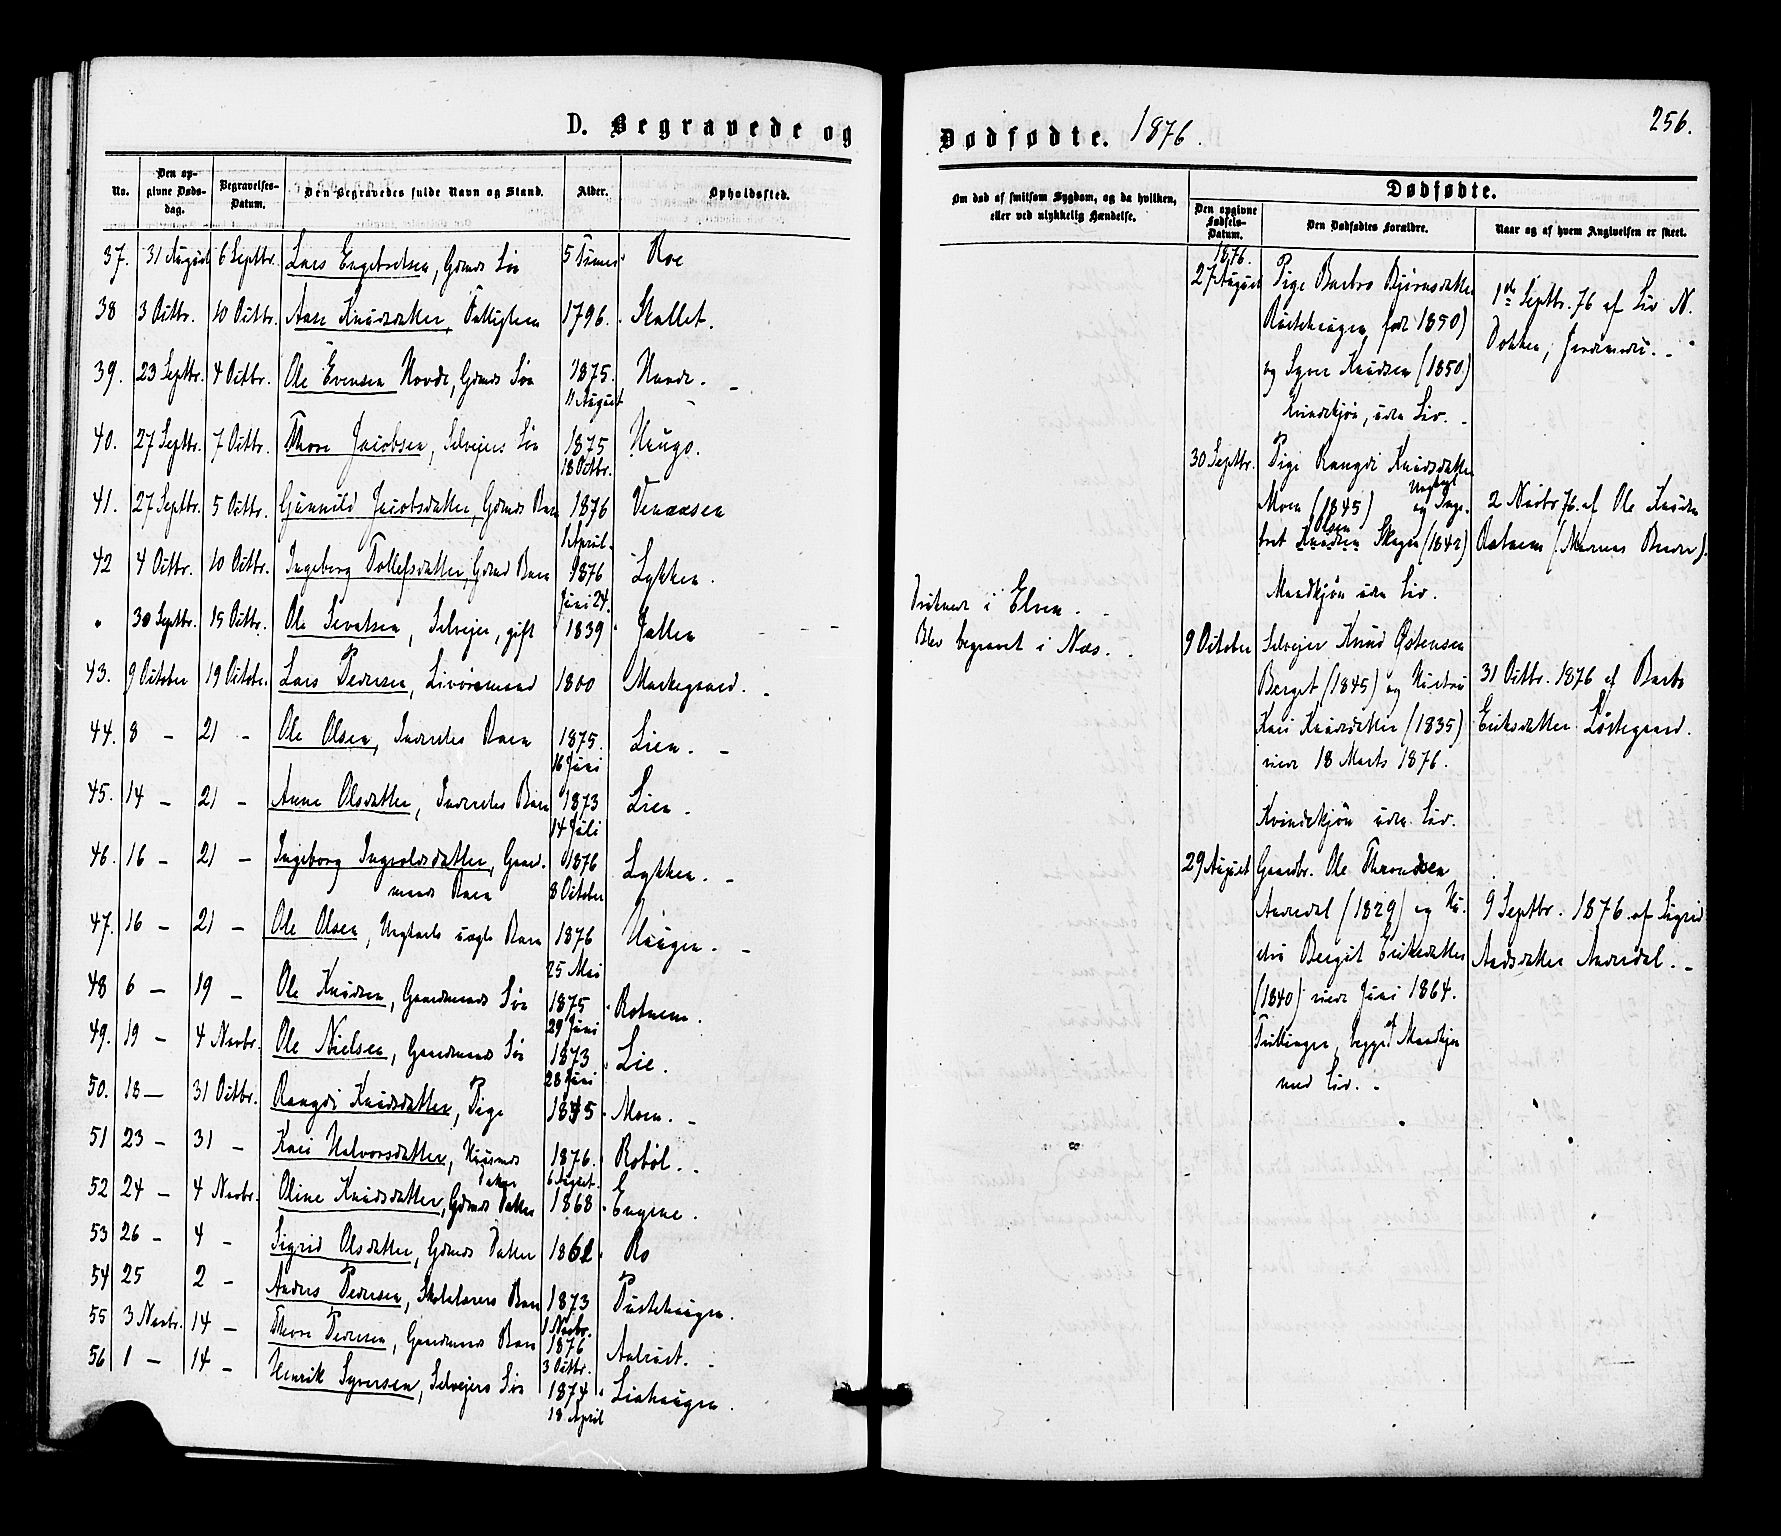 D. Begravede og
No. Den opgivne Dødsdag. Begravelses-Datum. Den Begravedes fulde Navn og Stand. Alder. Opholdssted.
37. 31 August 6 Septbr. Lars Engebretsen, Gdmds Søn 5 Timer Roe
38 3 Octbr. 10 Octbr. Aase Knudsdatter, Fattiglem 1796. Skallet.
39. 23 Septbr. 4 Octbr. Ole Evensen Hovde, Gdmds Søn 1875. Hovde.
11 August
40. 27 Septbr. 7 Octbr. Thore Jacobsen, Selvejers Søn 1875 Haugo.
18 Octbr.
41. 27 Septbr. 5 Octbr. Gunnild Jacobsdatter, Gdmds Barn 1876 Venaasen
1 April.
42 4 Octbr. 10 Octbr. Ingeborg Tollefsdatter, Gdmd Barn 1876 Lykken.
Juni 24.
" 30 Septbr. 15 Octbr. Ole Sevatsen, Selvejer, gift 1839 Jallen
43. 9 October 19 Octobr. Lars Pedersen, Livøremand 1800 Markegaard.
44. 8 – 21 – Ole Olsen, Inderstes Barn 1875. Lien.
16 Juni
45. 14 – 21 – Anne Olsdatter, Inderstes Barn 1873 Lien.
14 Juli
46. 16 – 21 – Ingeborg Ingvoldsdatter, Gaard- 1876 Lykken.
mands Barn 8 October
47. 16 – 21 – Ole Olsen, Ungkarls uægte Barn 1876 Haugen.
25 Mai
48 6 – 19 – Ole Knudsen, Gaardmands Søn 1875 Rotnem.
29 Juni
49. 19 – 4 Novbr. Ole Nielsen, Gaardmands Søn 1873 Lie.
28 Juni
50. 18 – 31 Octbr. Rangdi Knudsdatter, Pige 1845 Moen.
51 23 – 31 – Kari Halvorsdatter, Husmds 1876. Robøl.
Datter 6 Septbr.
52 24 – 4 Novbr. Oline Knudsdatter, Gdmds Datter 1868 Engene.
53 26 – 4 – Sigrid Olsdatter, Gdmds Datter 1862 Ro
54 25 2 – Anders Pedersen, Skolelærers Barn 1873 Pustehaugen.
1 Novbr.
55 3 Novbr. 14 – Thore Pedersen, Gaardmands Barn 1876 Aalrust.
3 Octbr.
56 1 – 14 – Henrik Syversen, Selvejers Søn 1874 Liahaugen.
18 April
Dødfødte. 1876.
256.
Om død af smitsom Sygdom, og da hvilken, eller ved ulykkelig Hændelse.
Druknede i Elven.
Blev begravet i Næs.
Dødfødte.
Den opgivne Fødsels-Datum. Den Dødfødtes Forældre. Naar og af hvem Angivelsen er skeet.
1876.
27 August Pige Barbro Bjørnsdatter
Rustehaugen født 1850)
og Syver Knudsen (1850)
Kvindekjøn, uden Liv.
1ste Septbr. 76 af Liv N.
Dokken, Jordemoder.
30 Septbr. Pige Rangdi Knudsdatter
Moen (1845) og Ungkarl Inge-
bret Knudsen Olsen Skagen (1842)
Mandkjøn uden Liv.
2 Novbr 76. af Ole Knudsen
Rotnem (Moerens Broder).
9 October Selvejer Knud Østensen
Berget (1845) og Hustru
Kari Knudsdatter (1835)
viede 18 Marts 1876.
Kvindekjøn uden Liv.
31 Octbr. 1876 af Barbro
Eriksdatter Løstegaard.
29 August Gaardbr. Ole Throndsen
Aaredal (1829) og Hu-
stru Bergit Eriksdatter
(1840) viede Juni 1864.
Tvillinger, begge af Mandkjøn
med Liv.
9 Septbr. 1876 af Sigrid
Aadsdatter Aaredal.